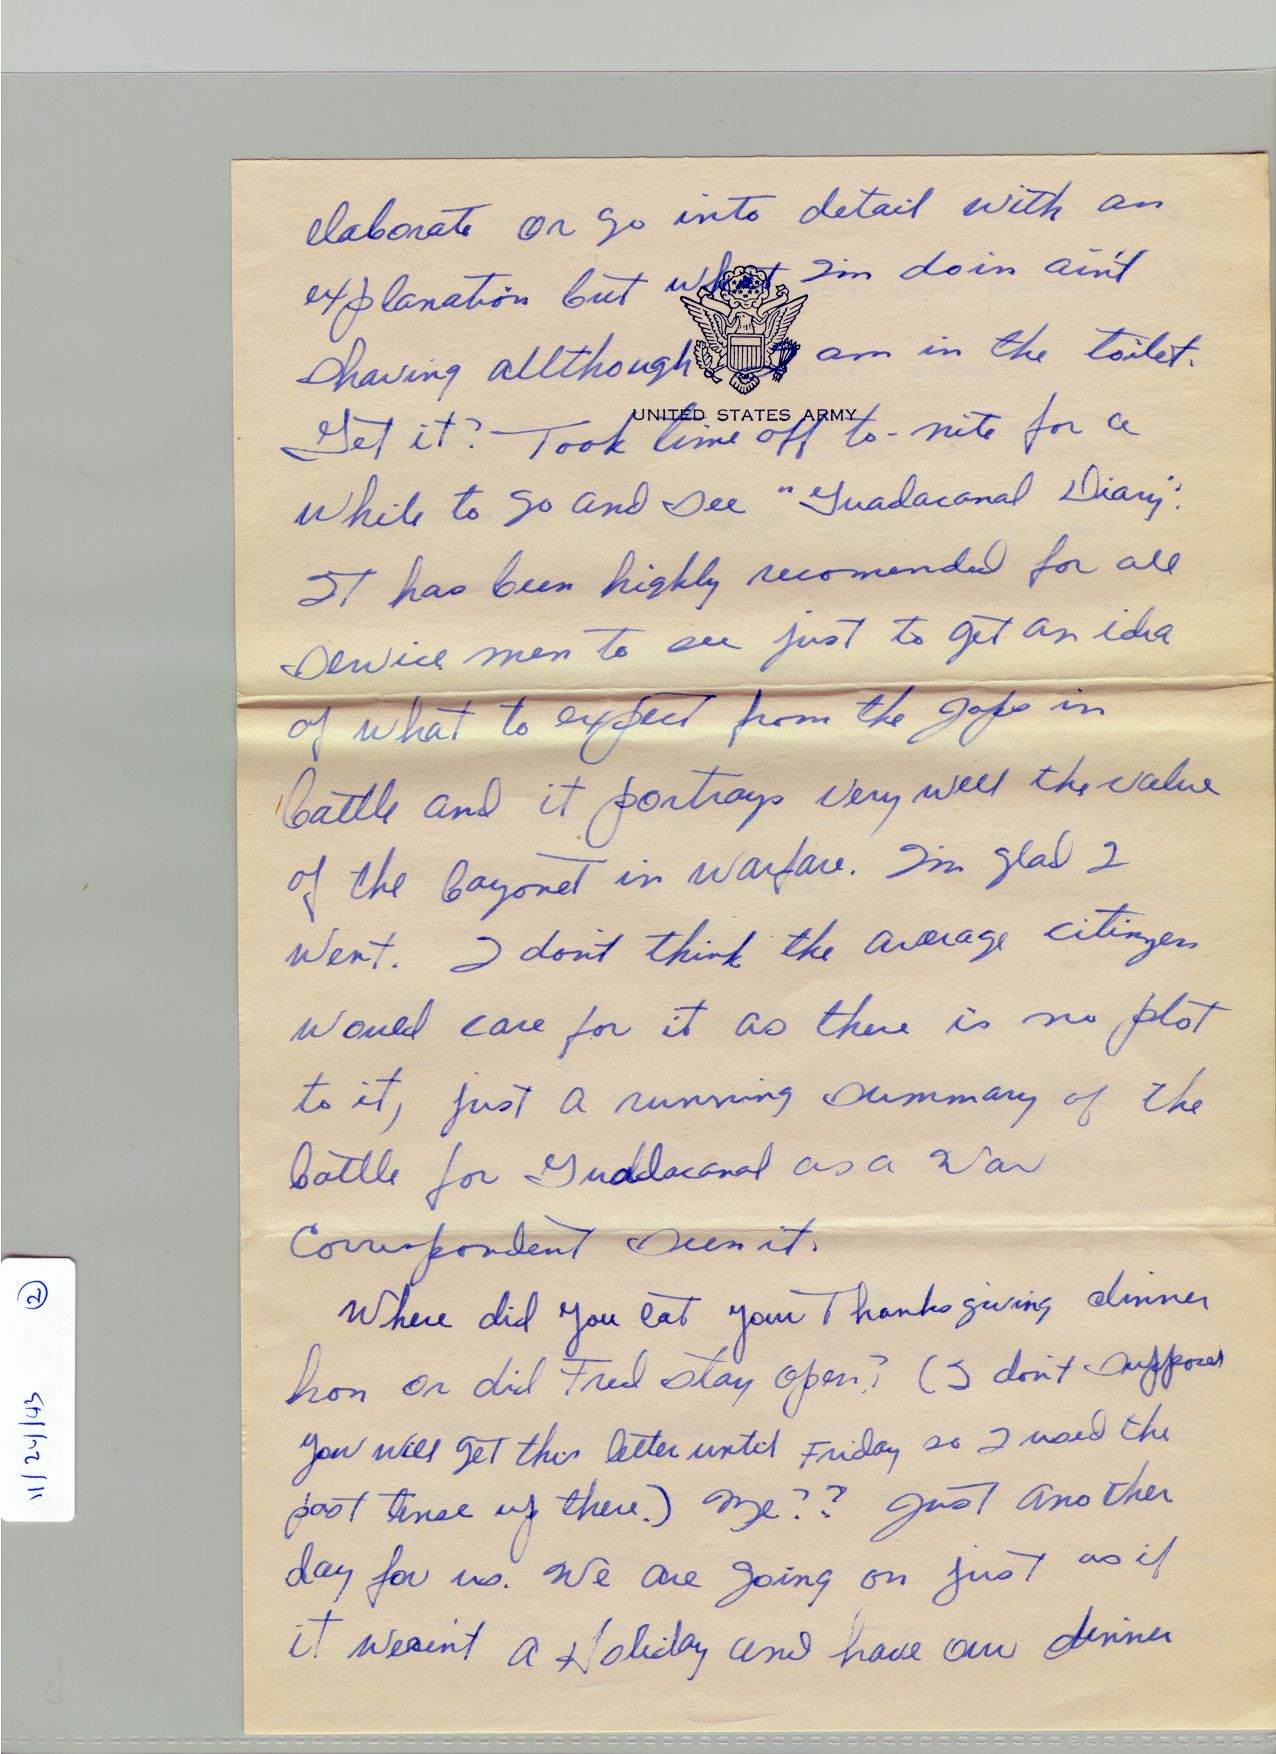 elaborate or go into detail with an
explanation but what Im doin ain't
shaving allthough I am in the toilet.
UNITED STATES ARMY
Get it? Took time off to-nite for a
while to go and see "Guadacanal Diary".
It has been highly recomended for all
service men to see just to get an idea
of what to expect from the Japs in
battle and it portrays very well the value
of the bayonet in warfare. Im glad I
went. I don't think the average citizen
would care for it as there is no plot
to it, just a running summary of the
battle for Guadacanal as a War
Correspondent seen it.
Where did you eat your Thanksgiving dinner
hon or did Fred stay open? (I don't suppose
you will get this letter until Friday so I used the
past tense up there.) Me?? Just another
day for us. We are going on just as if
it weren't a Holiday and have our dinner
2
11/24/43